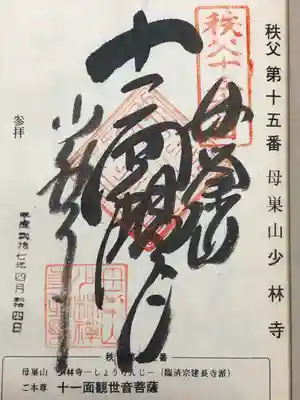 秩父 第十五番 母巣山 少林寺
秩父十五番
母巣山
十一面観世音
少林寺
参拝
平成弐拾七年四月拾四日
母巣山 少林寺―しょうりんじ―(臨済宗建長寺派)
ご本尊 十一面観世音菩薩